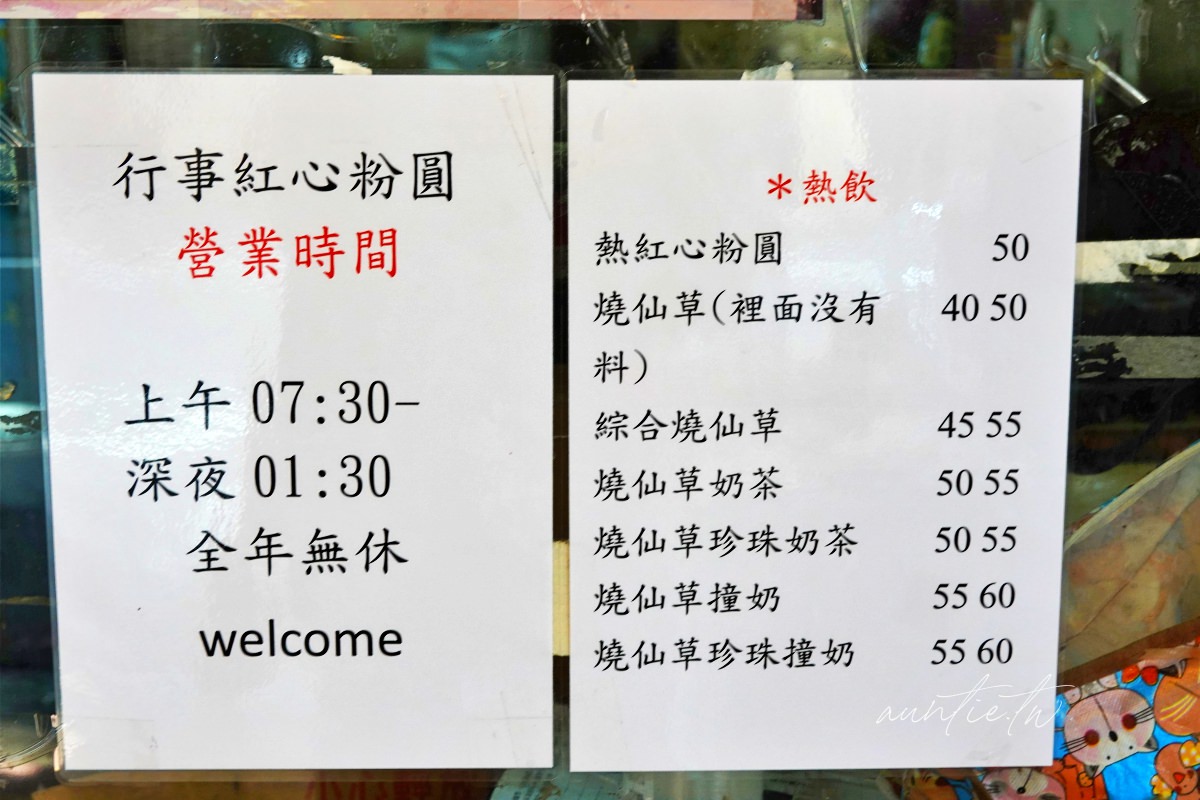 行事紅心粉圓
營業時間
上午 07:30-
深夜 01:30
全年無休
welcome
＊熱飲
熱紅心粉圓 50
燒仙草(裡面沒有 40 50
料)
綜合燒仙草 45 55
燒仙草奶茶 50 55
燒仙草珍珠奶茶 50 55
燒仙草撞奶 55 60
燒仙草珍珠撞奶 55 60
auntie.tw